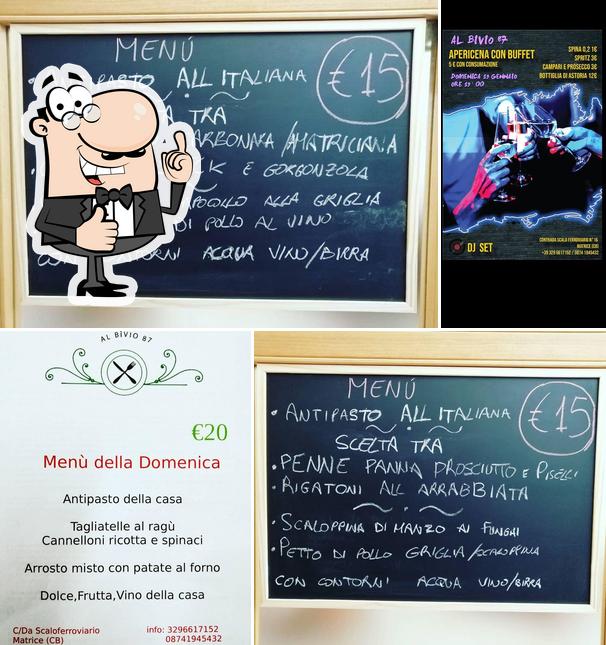 MENÚ
ALL ITALIANA
€15
TRA
CARBONARA/AMATRICIANA
K E GORGONZOLA
ALLA GRIGLIA
DI POLLO AL VINO
ACQUA VINO/BIRRA
AL BIVIO 87
APERICENA CON BUFFET
5 € CON CONSUMAZIONE
SPINA 0,2 1€
SPRITZ 3€
CAMPARI E PROSECCO 3€
BOTTIGLIA DI ASTORIA 12€
DOMENICA
GENNAIO
ORE
DJ SET
CONTRADA SCALO FERROVIARIO N° 16
MATRICE (CB)
+39 329 6617152 / 0874 1945432
AL BIVIO 87
€20
Menù della Domenica
Antipasto della casa
Tagliatelle al ragù
Cannelloni ricotta e spinaci
Arrosto misto con patate al forno
Dolce,Frutta,Vino della casa
C/Da Scaloferroviario
Matrice (CB)
info: 3296617152
08741945432
MENÚ
€15
• ANTIPASTO ALL ITALIANA
SCELTA TRA
• PENNE PANNA PROSCIUTTO E PISELLI
• RIGATONI ALL ARRABBIATA
• SCALOPPINA DI MANZO AI FUNGHI
• PETTO DI POLLO GRIGLIA/SCALOPPINA
CON CONTORNI ACQUA VINO/BIRRA